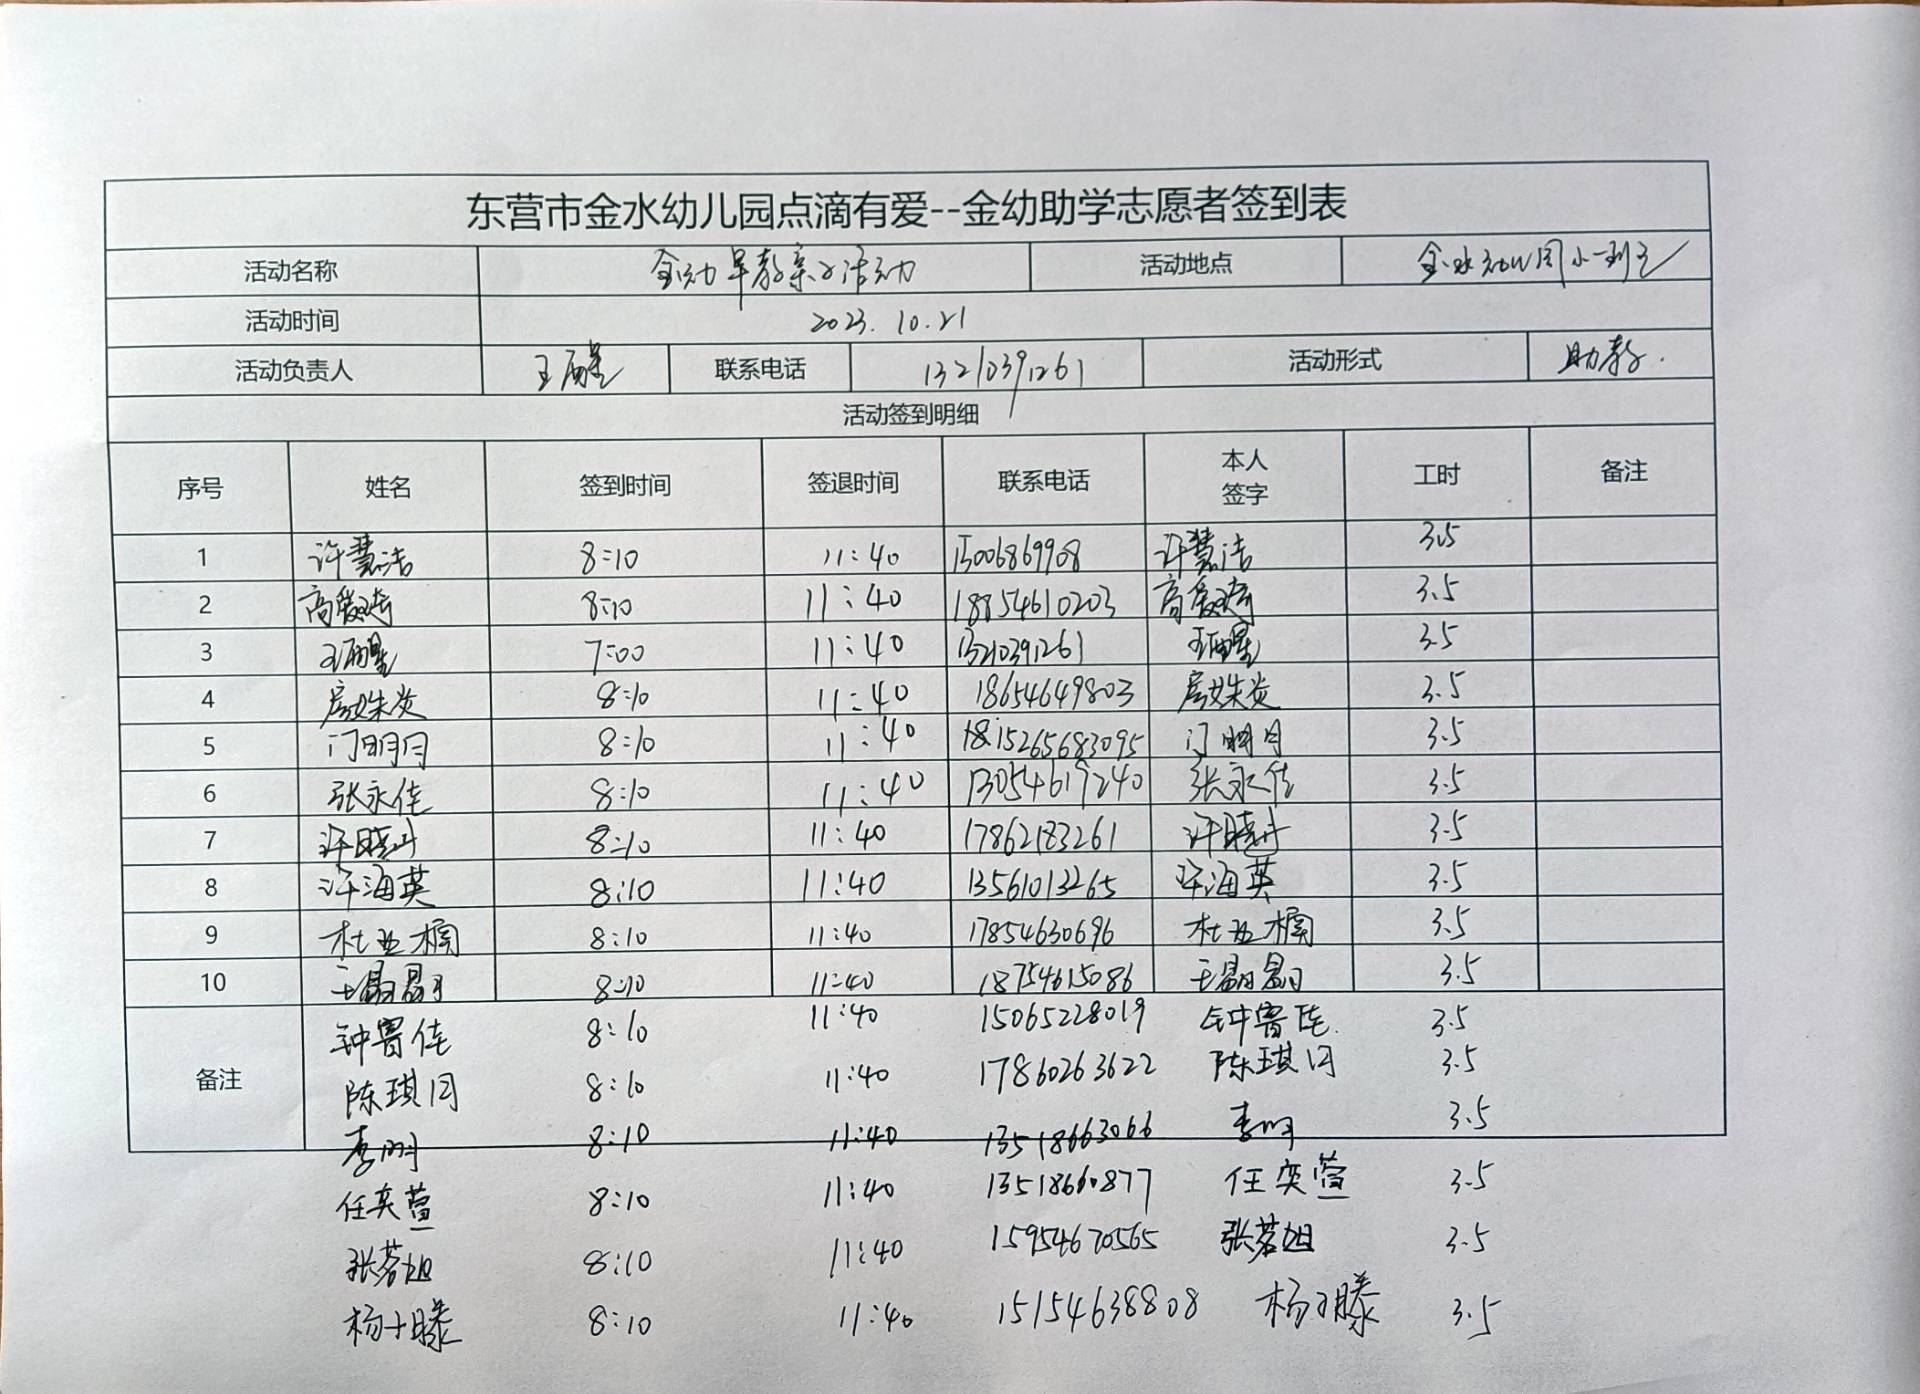 东营市金水幼儿园点滴有爱--金幼助学志愿者签到表
活动名称 金幼早教亲子活动 活动地点 金水幼儿园小一班
活动时间 2023.10.21
活动负责人 王丽星 联系电话 13210391261 活动形式 助教.
活动签到明细
序号 姓名 签到时间 签退时间 联系电话 本人签字 工时 备注
1 许慧洁 8:10 11:40 15006869908 许慧洁 3.5
2 高爱琦 8:10 11:40 18854610203 高爱琦 3.5
3 王丽星 7:00 11:40 13210391261 王丽星 3.5
4 房姝炎 8:10 11:40 18654649803 房姝炎 3.5
5 门明月 8:10 11:40 15265683095 门明月 3.5
6 张永佳 8:10 11:40 13054619240 张永佳 3.5
7 许晓丹 8:10 11:40 17862183261 许晓丹 3.5
8 许海英 8:10 11:40 13561013265 许海英 3.5
9 杜亚楠 8:10 11:40 17854630696 杜亚楠 3.5
10 王晶晶 8:10 11:40 18754615086 王晶晶 3.5
备注
钟鲁佳 8:10 11:40 15065228019 钟鲁佳 3.5
陈琪月 8:10 11:40 17860263622 陈琪月 3.5
李明 8:10 11:40 13518663066 李明 3.5
任奕萱 8:10 11:40 13518660877 任奕萱 3.5
张茗姐 8:10 11:40 15954670565 张茗姐 3.5
杨子滕 8:10 11:40 15154638808 杨子滕 3.5